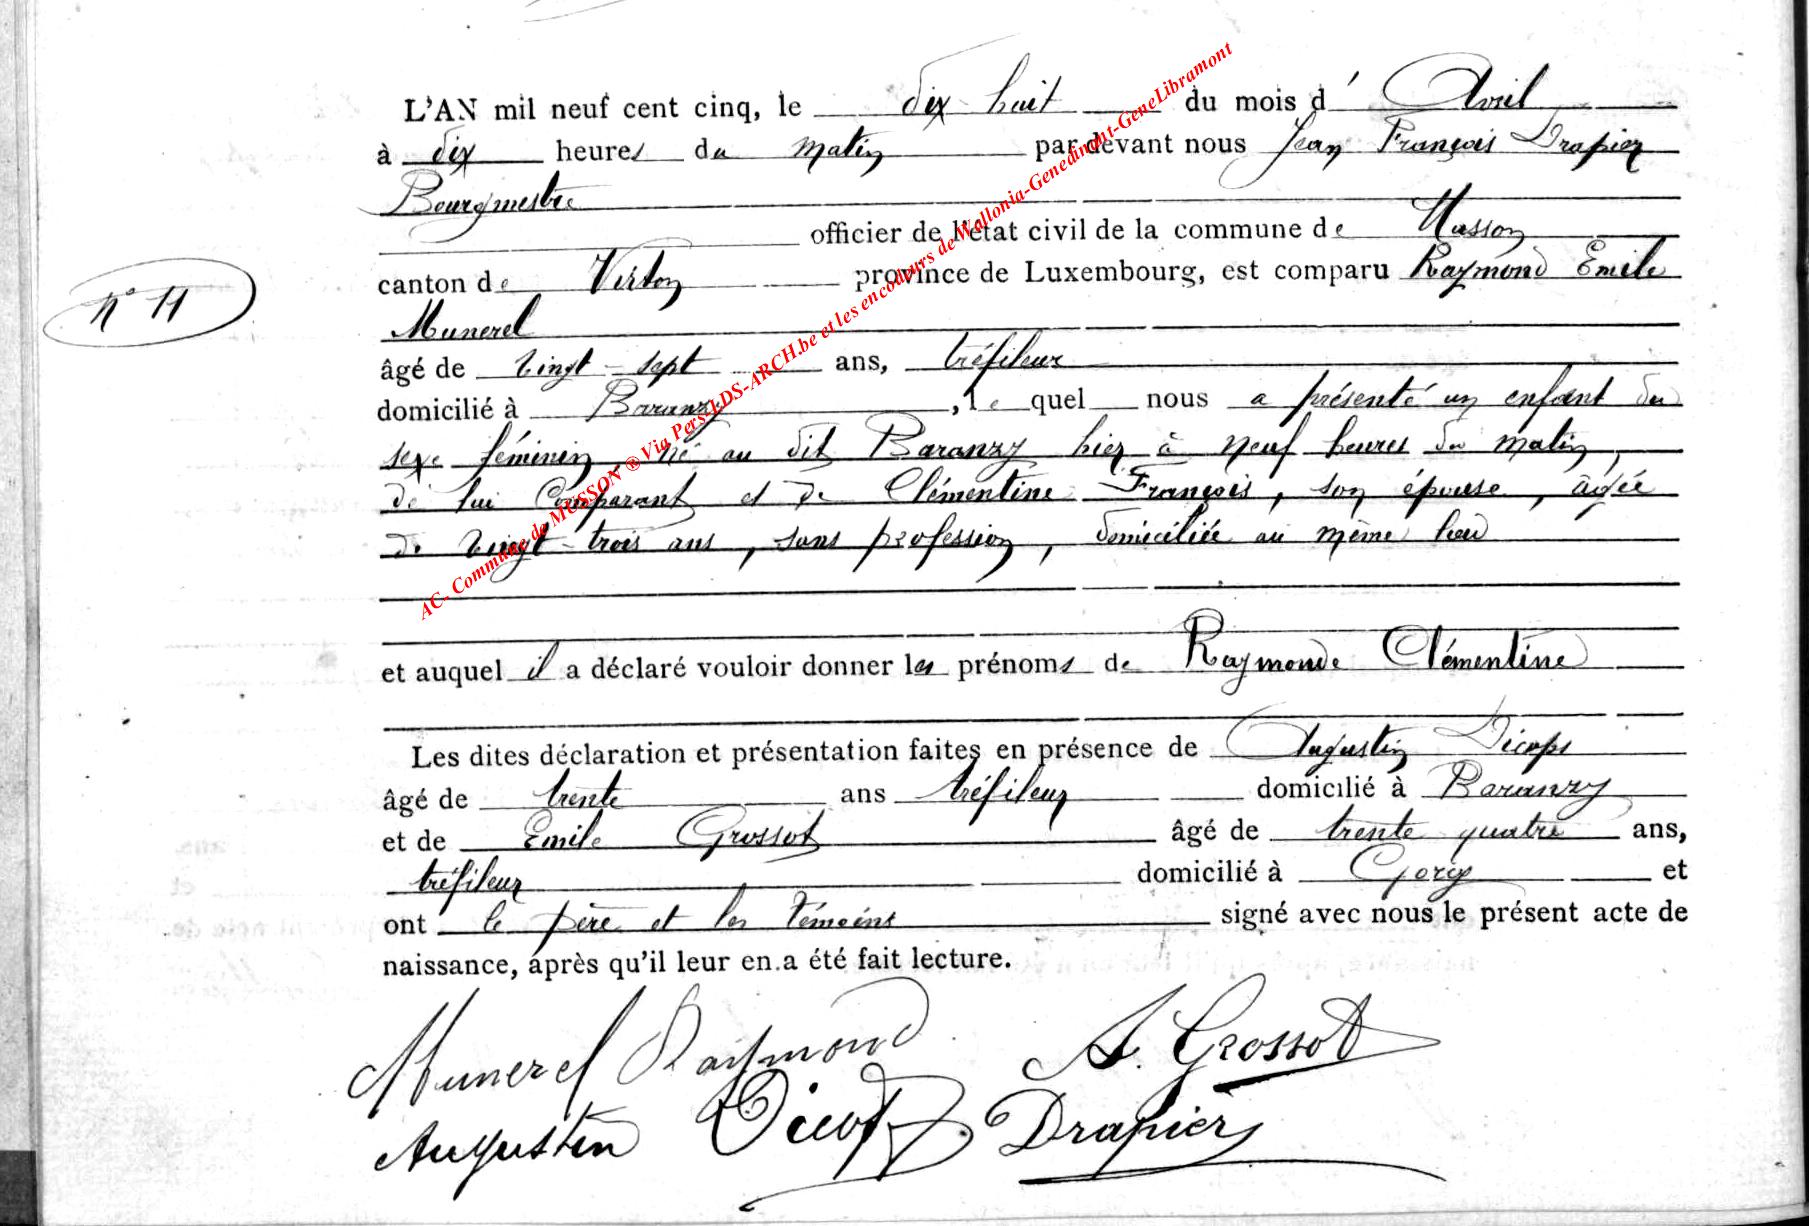 L'AN mil neuf cent cinq, le dix huit du mois d' Avril
à dix heures du matin par devant nous Jean François Drapier
Bourgmestre
officier de l'état civil de la commune de Musson
canton de Virton province de Luxembourg, est comparu Raymond Emile
Munerel
N° 11
âgé de vingt-sept ans, tréfileur
domicilié à Baranzy, le quel nous a présenté un enfant du
sexe féminin, né au dit Baranzy hier à neuf heures du matin,
de lui Comparant et de Clémentine François, son épouse, âgée
de vingt-trois ans, sans profession, domiciliée au même lieu
et auquel il a déclaré vouloir donner les prénoms de Raymonde Clémentine
Les dites déclaration et présentation faites en présence de Augustin
âgé de trente ans tréfileur domicilié à Baranzy
et de Emile Grossot âgé de trente quatre ans,
tréfileur domicilié à Gorcy et
ont le père et les témoins signé avec nous le présent acte de
naissance, après qu'il leur en a été fait lecture.
Munerel Raymond
Grossot
Augustin
Drapier
AC- Commune de MUSSON ® Via Pers-LDS-ARCH.be et les encodeurs de Wallonia-Genedinant-GeneLibramont